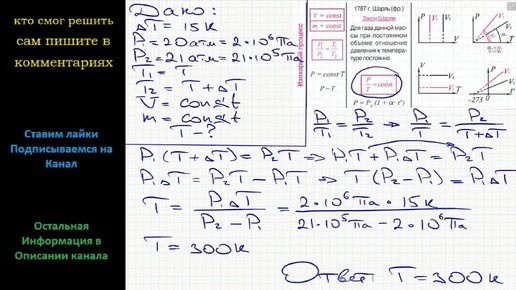 кто смог решить
сам пишите в
комментариях
Ставим лайки
Подписываемся на
Канал
Остальная
Информация в
Описании канала
Дано:
ΔT = 15К
P₁ = 20атм = 2·10⁶Па
P₂ = 21атм = 21·10⁵Па
T₁ = T
T₂ = T + ΔT
V = const
m = const
T - ?
Изохорный процесс
V = const
m = const
P₁/T₁ = P₂/T₂
P = const·T
P ~ T
1787 г. Шарль (фр.)
Закон Шарля
Для газа данной мас-
сы при постоянном
объеме отношение
давления к темпера-
туре постоянно
P/T = const
P = P₀ (1 + α · t°)
-273
P₁/T₁ = P₂/T₂ => P₁/T = P₂/(T+ΔT)
P₁(T+ΔT) = P₂T => P₁T + P₁ΔT = P₂T
P₁ΔT = P₂T - P₁T => T(P₂-P₁) = P₁ΔT
T = P₁ΔT/(P₂-P₁) = 2·10⁶Па · 15К/(21·10⁵Па - 2·10⁶Па)
T = 300К
Ответ T = 300К